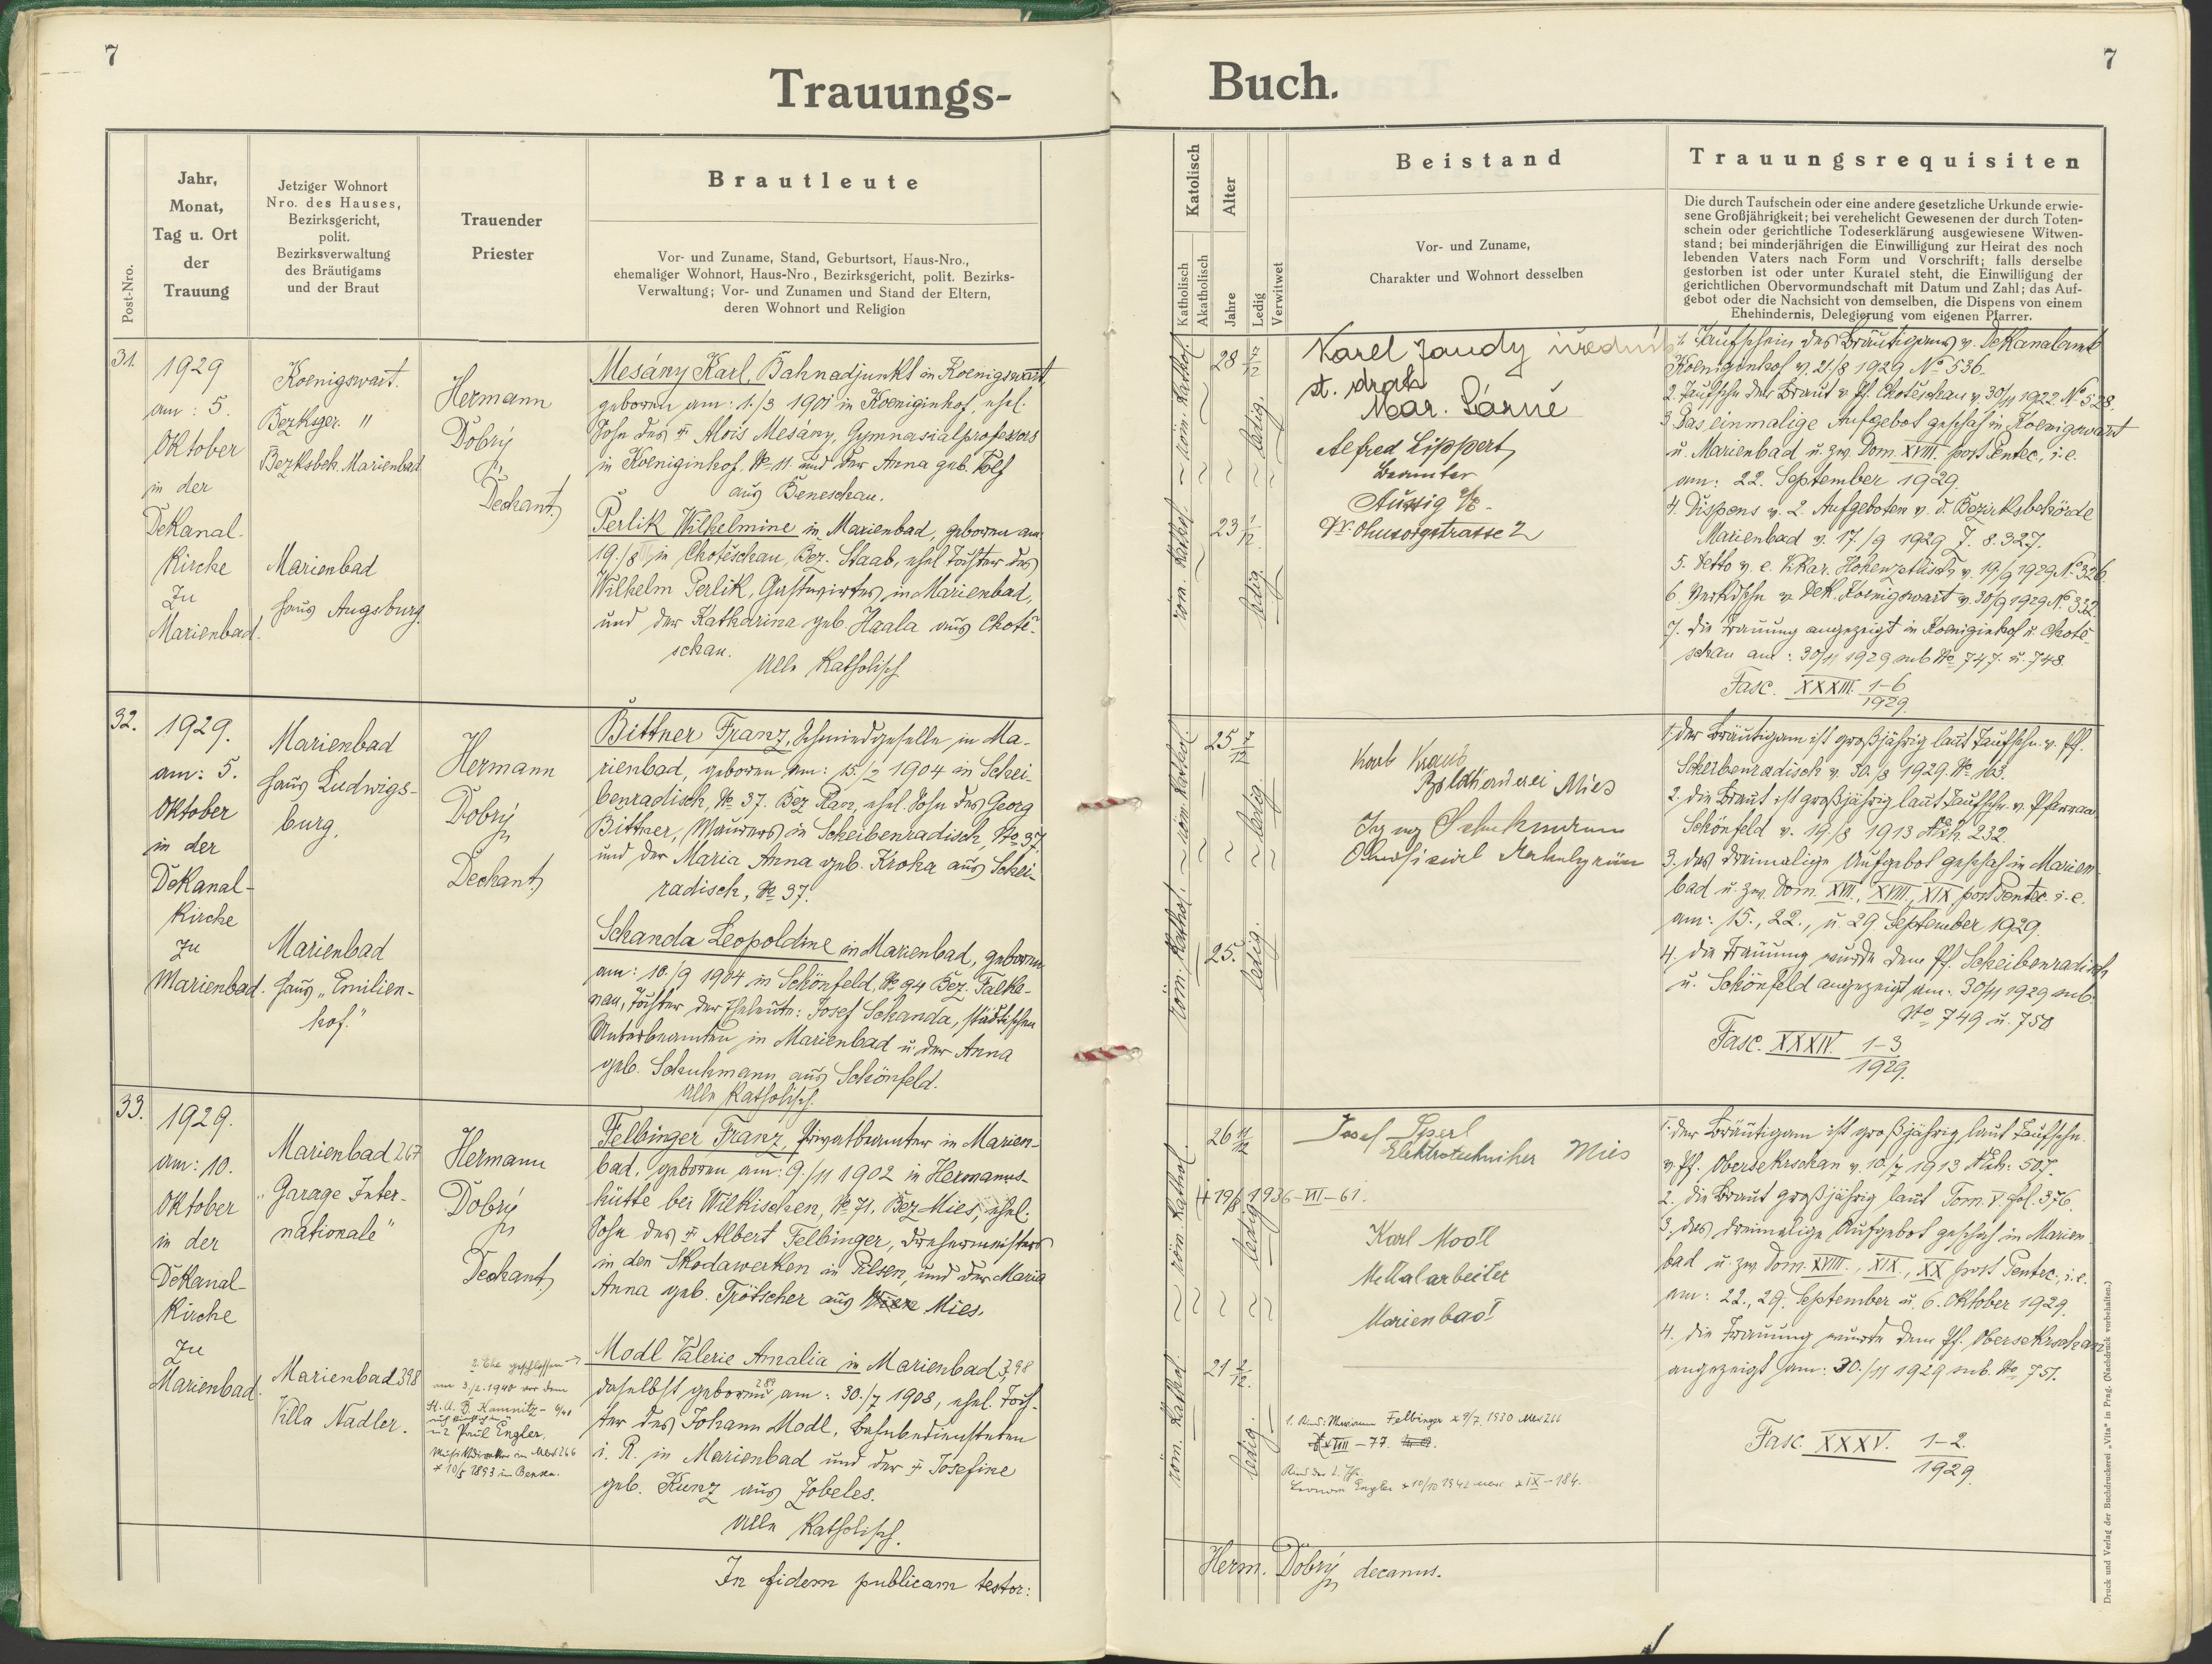 7
Trauungs-
Post-Nro.
Jahr,
Monat,
Tag u. Ort
der
Trauung
Jetziger Wohnort
Nro. des Hauses,
Bezirksgericht,
polit.
Bezirksverwaltung
des Bräutigams
und der Braut
Trauender
Priester
Brautleute
Vor- und Zuname, Stand, Geburtsort, Haus-Nro.,
ehemaliger Wohnort, Haus-Nro., Bezirksgericht, polit. Bezirks-
Verwaltung; Vor- und Zunamen und Stand der Eltern,
deren Wohnort und Religion
31.
1929
am: 5.
Oktober
in der
Dekanal-
Kirche
zu
Marienbad.
Koenigswart.
Bezksger. "
Bezksbeh. Marienbad
Marienbad
Haus Augsburg.
Hermann
Dobrý
Dechant
Mesány Karl, Bahnadjunkt in Koenigswart,
geboren am: 1./3 1901 in Koeniginhof, ehel.
Sohn des † Alois Mesány, Gymnasialprofessors
in Koeniginhof No 11. und der Anna geb.
aus Beneschau.
Perlik Wilhelmine in Marienbad, geboren am
19./8 in Chotěschau, Bez. Staab, ehel Tochter des
Wilhelm Perlik, Gastwirtes in Marienbad,
und der Katharina geb Haala aus Chotě-
schau.
Alle Katholisch
32.
1929.
am: 5.
Oktober
in der
Dekanal-
Kirche
zu
Marienbad.
Marienbad
Haus Ludwigs-
burg.
Marienbad
Haus „Emilien-
hof."
Hermann
Dobrý
Dechant
Bittner Franz, Schmiedgeselle in Ma-
rienbad, geboren am: 15./2 1904 in Schei-
benradisch, No 37. Bez Plan, ehel. Sohn des Georg
Bittner, Maurers in Scheibenradisch, No 37,
und der Maria Anna geb. Kroha aus Schei-
radisch, No 37.
Schanda Leopoldine in Marienbad, geboren
am: 10./9 1904 in Schönfeld, No 94 Bez. Falke-
nau, Tochter der Eheleute: Josef Schanda, städtischen
Unterbeamten in Marienbad u. der Anna
geb. Schuhmann aus Schönfeld.
Alle Katholisch.
33.
1929.
am: 10.
Oktober
in der
Dekanal-
Kirche
zu
Marienbad.
Marienbad 267
„Garage Inter-
nationale"
Marienbad 398
Villa Nadler.
Hermann
Dobrý
Dechant
2. Ehe geschlossen →
am 3./2. 1940 vor dem
St. A. B. Kamnitz - 6/40
mit Paul Engler,
Musikdirektor in Mbd 266
* 10/5 1893 in Bensen.
Felbinger Franz, Privatbeamter in Marien-
bad, geboren am: 9./11 1902 in Hermanns-
hütte bei Wilkischen, No 71. Bez Mies, ehel.
Sohn des † Albert Felbinger, Drehermeisters
in den Skodawerken in Pilsen, und der Maria
Anna geb. Trötscher aus Mies.
Modl Valerie Amalia in Marienbad 398
daselbst geboren 289 am: 30./7 1908, ehel. Toch-
ter des Johann Modl, Bahnbediensteten
i. R. in Marienbad und der † Josefine
geb. Kunz aus Zobeles.
Alle Katholisch.
In fidem publicam testor:
7
Buch.
Katolisch
Katholisch
Akatholisch
Alter
Jahre
Ledig
Verwitwet
Beistand
Vor- und Zuname,
Charakter und Wohnort desselben
Trauungsrequisiten
Die durch Taufschein oder eine andere gesetzliche Urkunde erwie-
sene Großjährigkeit; bei verehelicht Gewesenen der durch Toten-
schein oder gerichtliche Todeserklärung ausgewiesene Witwen-
stand; bei minderjährigen die Einwilligung zur Heirat des noch
lebenden Vaters nach Form und Vorschrift; falls derselbe
gestorben ist oder unter Kuratel steht, die Einwilligung der
gerichtlichen Obervormundschaft mit Datum und Zahl; das Auf-
gebot oder die Nachsicht von demselben, die Dispens von einem
Ehehindernis, Delegierung vom eigenen Pfarrer.
röm. kathol.
28 7/12
ledig.
röm. kathol.
23 1/12
ledig.
Karel Jandy úředník
st. drah
Mar. Lánué
Alfred Lippert,
Beamter
Aussig a/E.
Dr. Ohnsorgstrasse 2
1. Taufschein des Bräutigams v. Dekanalamt
Koeniginhof v. 21./8 1929 No 536.
2. Taufschn der Braut v. Pf. Chotěschau v. 30/11 1922 No 528.
3. Das einmalige Aufgebot geschah in Koenigswart
u. Marienbad u. zw. Dom. XVIII. post Pentec., i. e.
am: 22. September 1929.
4. Dispens v. 2 Aufgeboten v. d. Bezirksbehörde
Marienbad v. 17./9 1929 Z. 8.327.
5. Detto v. e. Vikar. Hohenzetlisch v. 19./9 1929 No 326.
6. Verkdschn v. Dek. Koenigswart v. 30/9 1929 No 332
7. Die Trauung angezeigt in Koeniginhof u. Chotě-
schau am: 30/11 1929 sub No 747. u. 748.
Fasc. XXXIII. 1-6
1929.
röm. kathol.
25 7/12
ledig
röm. kathol.
25.
ledig.
Karl Kraus
Mies
Schuhmann
1. Der Bräutigam ist großjährig laut Taufschn. v. Pf.
Scheibenradisch v. 30./8 1929. No 163.
2. die Braut ist großjährig laut Taufschn. v. Pfarramt
Schönfeld v. 19./8 1913 232.
3. das dreimalige Aufgebot geschah in Marien-
bad u. zw. Dom. XVII., XVIII., XIX post Pentec. i. e.
am: 15., 22., u. 29. September 1929.
4. die Trauung wurde dem Pf. Scheibenradisch
u. Schönfeld angezeigt am: 30/11 1929 sub
No 749 u. 750
Fasc. XXXIV. 1-3
1929.
röm. kathol.
26 11/12
ledig
† 19/8 1936 - VII - 61.
röm. kathol.
21 2/12.
ledig.
Josef Sperl
Elektrotechniker Mies
Karl Modl
Metallarbeiter
Marienbad
1. Kind: Felbinger * 9/7. 1930 Mbd 266
VIII - 77.
Kind der 2. Ehe
Engler * 10/10 1942 IX - 184.
1. der Bräutigam ist großjährig laut Taufschn.
v. Pf. Obersekrschan v. 10./7 1913 507.
2. die Braut großjährig laut Tom. V. fol. 376.
3. das dreimalige Aufgebot geschah in Marien-
bad u. zw. Dom. XVIII., XIX., XX post Pentec., i. e.
am: 22., 29. September u. 6. Oktober 1929.
4. die Trauung wurde dem Pf. Obersekrschan
angezeigt am: 30./11 1929 sub. No 751.
Fasc. XXXV. 1-2.
1929.
Herm. Dobrý decanus.
Druck und Verlag der Buchdruckerei „Vita" in Prag. (Nachdruck vorbehalten.)